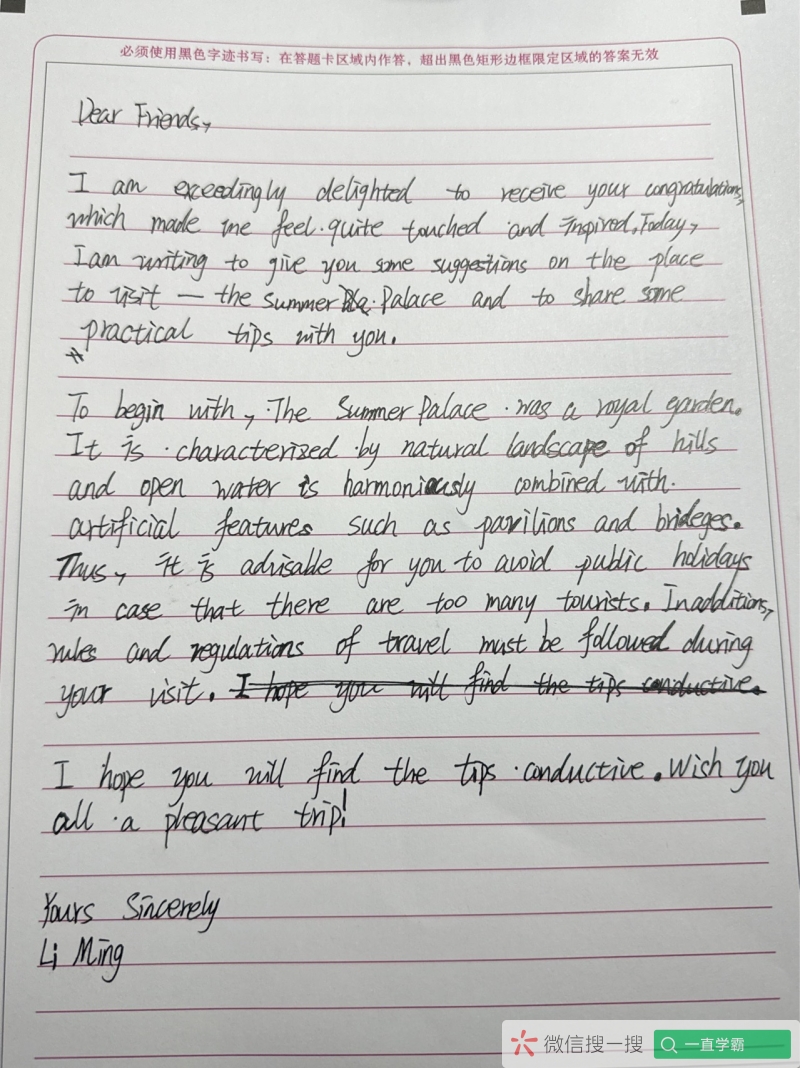 必须使用黑色字迹书写：在答题卡区域内作答，超出黑色矩形边框限定区域的答案无效
Dear Friends,
I am exceedingly delighted to receive your congratulations,
which made me feel quite touched and inpired. Today,
I am writing to give you some suggestions on the place
to visit — the Summer Palace and to share some
practical tips with you.
To begin with, The Summer Palace was a royal garden.
It is characterized by natural landscape of hills
and open water is harmoniously combined with
artificial features such as pavilions and brideges.
Thus, it is advisable for you to avoid public holidays
in case that there are too many tourists. In additions,
rules and regulations of travel must be followed during
your visit. I hope you will find the tips conductive.
I hope you will find the tips conductive. Wish you
all a pleasant trip!
Yours Sincerely
Li Ming
微信搜一搜 一直学霸